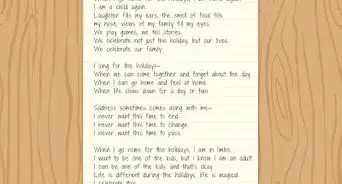 I am a child again.
Laughter fills my ears, the smell of food fills
my nose, views of my family fill my eyes.
We play games, we tell stories.
We celebrate not just the holiday, but our lives.
We celebrate our family.
I long for the holidays-
When we can come together and forget about the day
When I can go home and feel at home.
When life slows down for a day or two.
Sadness sometimes comes along with me-
I never want this time to end.
I never want this time to change.
I never want this time to pass.
When I go home for the holidays, I am in limbo.
I want to be one of the kids, but I know I am an adult.
I can be one of the kids, and that's okay.
Life is different during the holidays, life is magical.
I celebrate